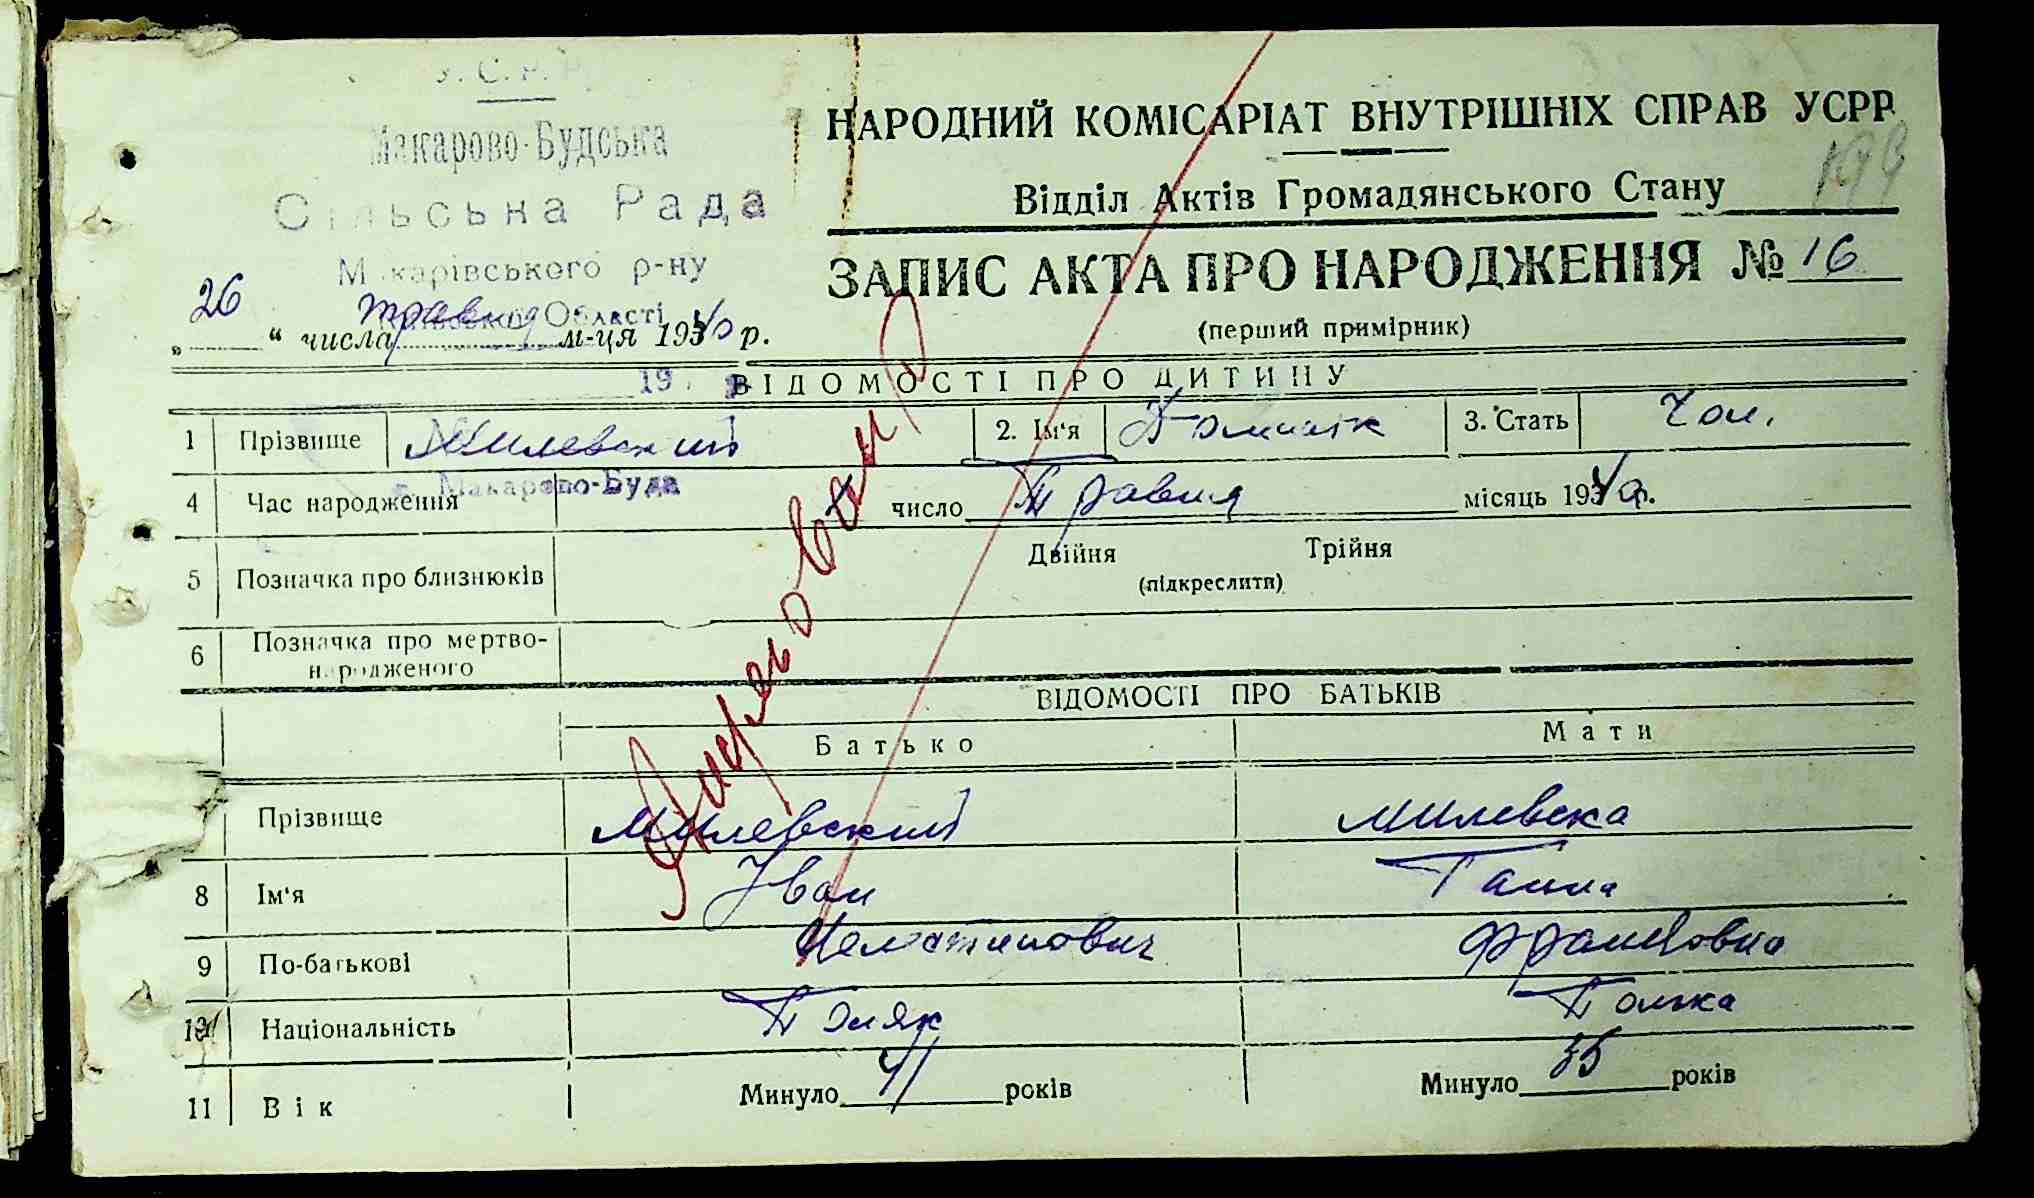 У.С.Р.Р
Макарово-Будська
Сільська Рада
Макарівського р-ну
Області
19
с. Макарово-Буда
НАРОДНИЙ КОМІСАРІАТ ВНУТРІШНІХ СПРАВ УСРР
Відділ Актів Громадянського Стану
ЗАПИС АКТА ПРО НАРОДЖЕННЯ № 16
(перший примірник)
„26“ числа травня м-ця 1940 р.
ВІДОМОСТІ ПРО ДИТИНУ
1 Прізвище Милевський 2. Ім'я Домінік 3. Стать Чол.
4 Час народження число Травня місяць 1940 р.
5 Позначка про близнюків Двійня Трійня
(підкреслити)
6 Позначка про мертво-
народженого
ВІДОМОСТІ ПРО БАТЬКІВ
Батько Мати
Прізвище Милевский Милевска
8 Ім'я Іван Ганна
9 По-батькові Францовна
10 Національність Поляк Полька
11 Вік Минуло 41 років Минуло 35 років